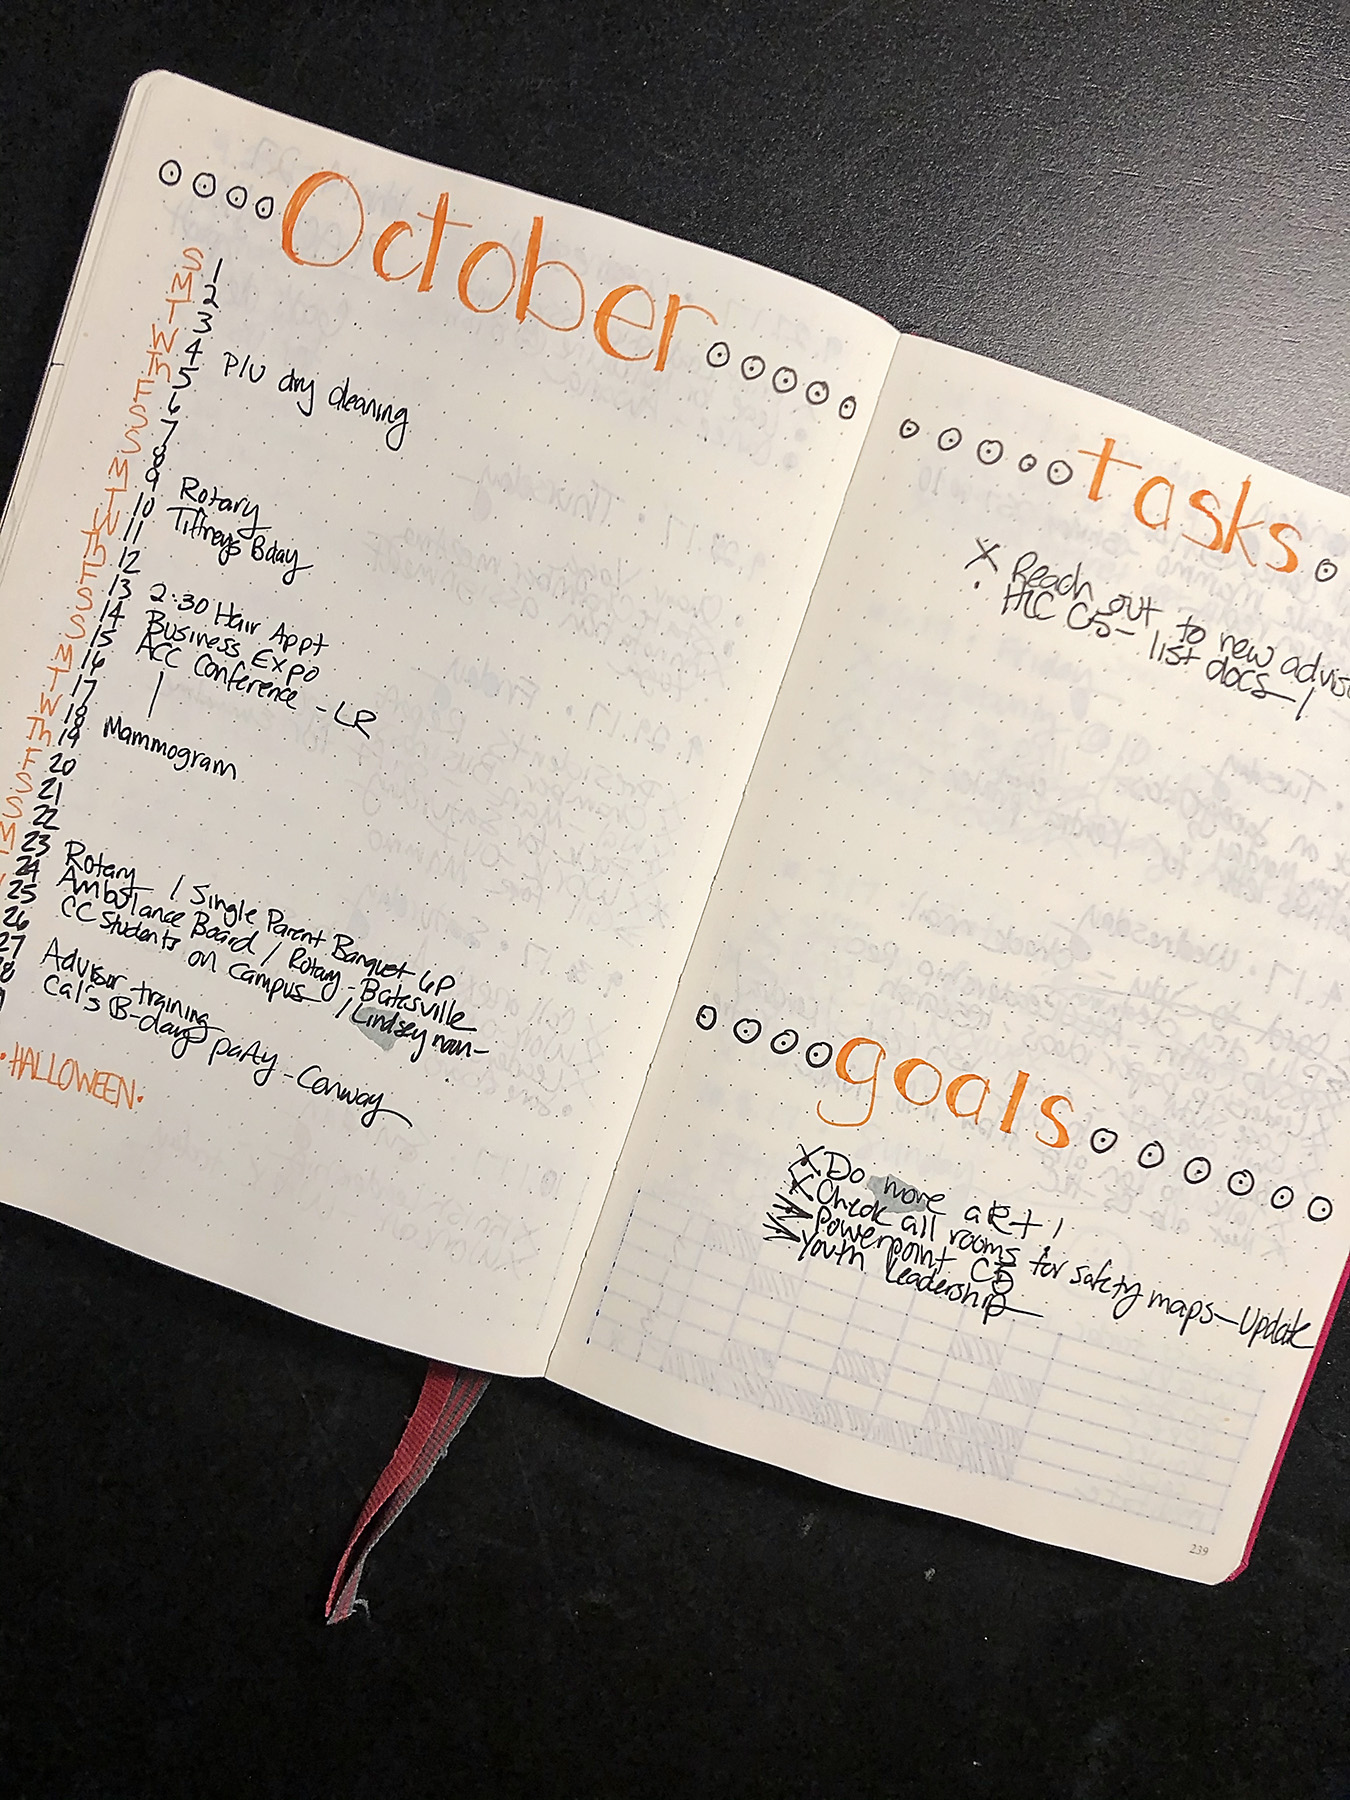 October
S 1
M 2
T 3
W 4 P/U dry cleaning
Th 5
F 6
S 7
S 8
M 9 Rotary
T 10 Tiffneys Bday
W 11
Th 12
F 13 2:30 Hair Appt
S 14 Business Expo
S 15 ACC Conference - LR
M 16
T 17
W 18 Mammogram
Th 19
F 20
S 21
S 22
M 23 Rotary / Single Parent Banquet 6P
24 Ambulance Board / Rotary - Batesville
25 CC Students on Campus / Lindsey
26
27 Advisor training
8 Cal's B-day party - Conway
9
• HALLOWEEN •
tasks
X Reach out to new
• HLC C5 - list docs
goals
X Do more aRt!
X Check all rooms for safety maps - Update
Powerpoint C5
Youth Leadership
239